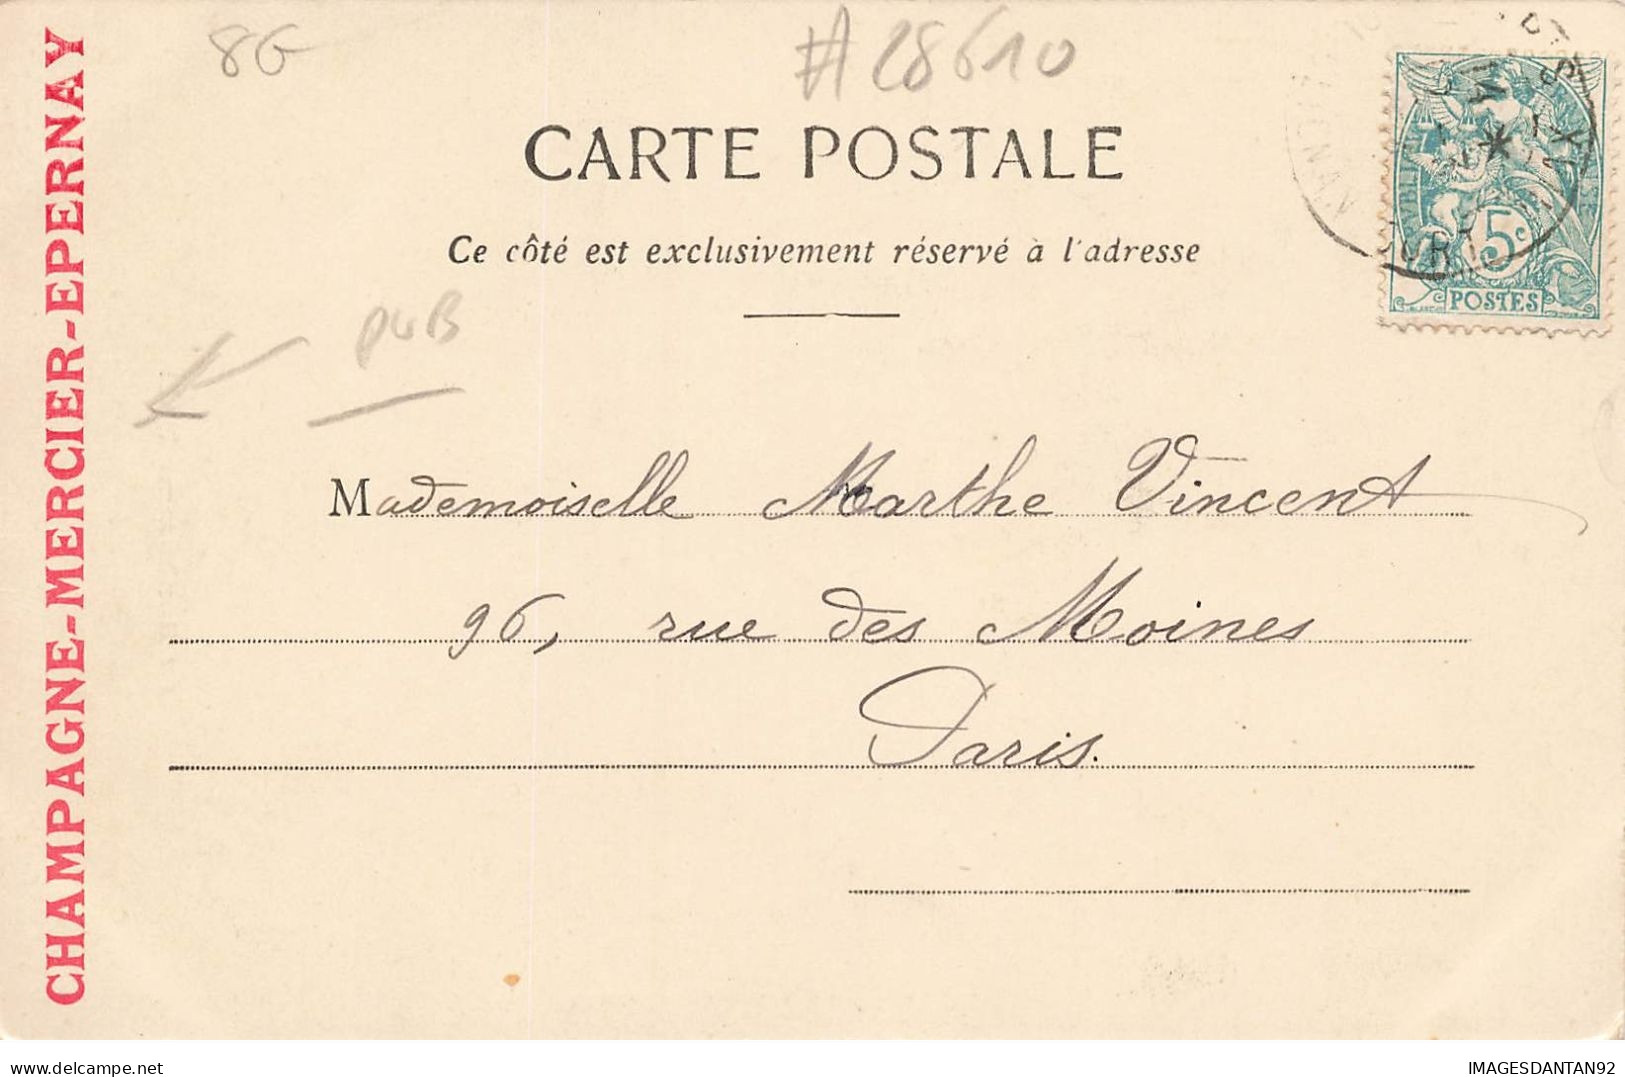 8G
#28610
CARTE POSTALE
Ce côté est exclusivement réservé à l'adresse
PUB
CHAMPAGNE-MERCIER-EPERNAY
5c
POSTES
Mademoiselle Marthe Vincent
96, rue des Moines
Paris.
delcampe.net
IMAGESDANTAN92